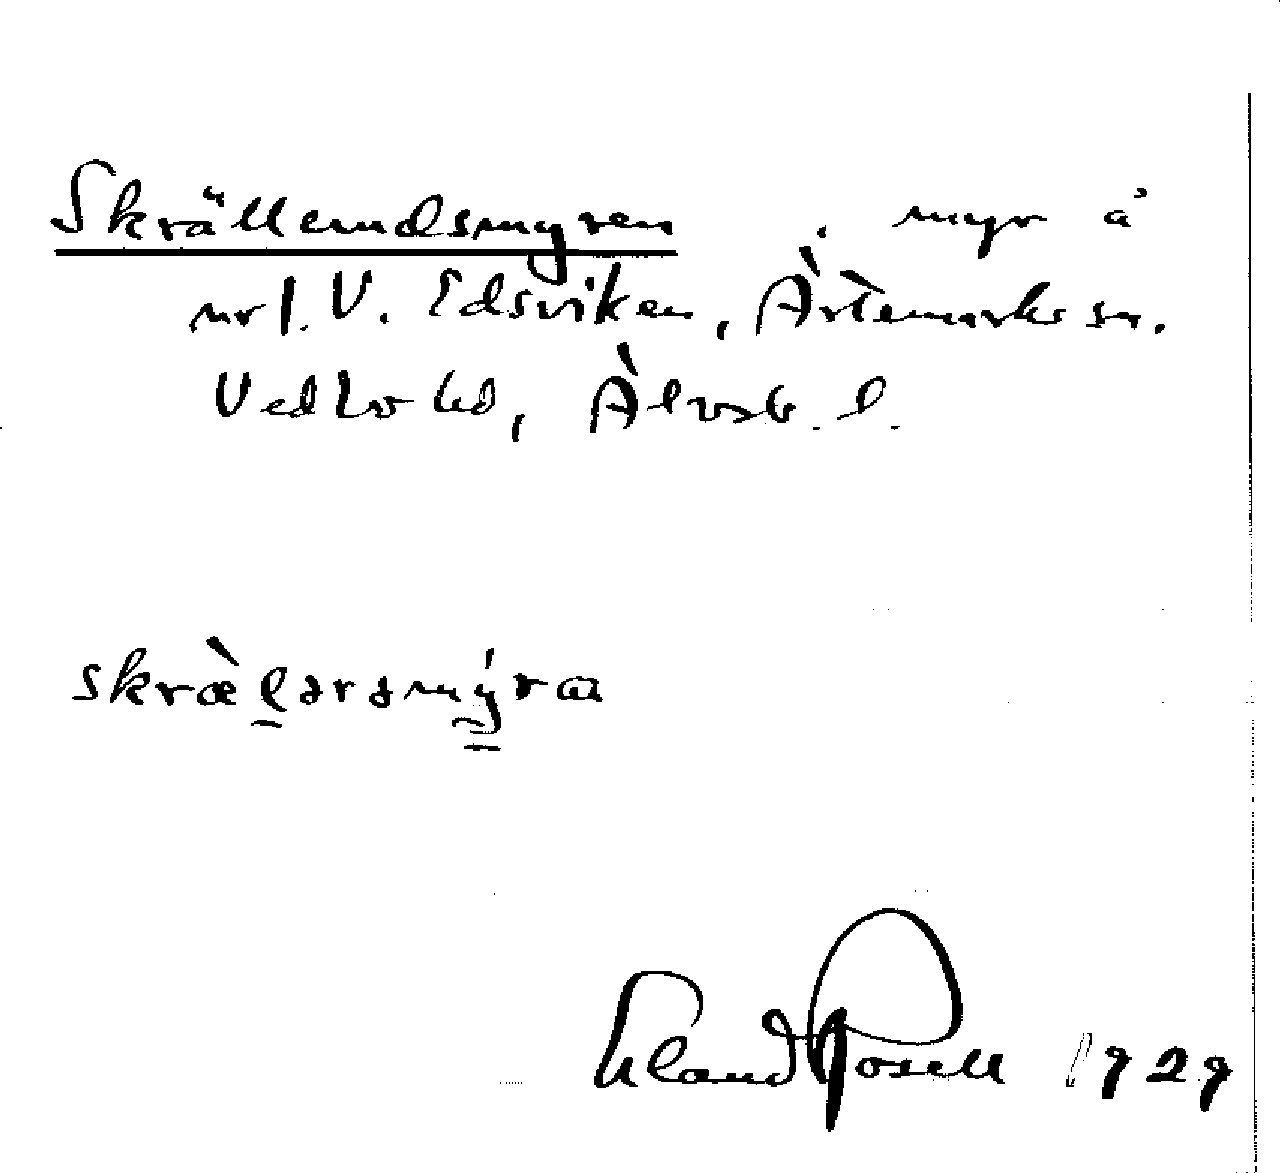 Skrällerudsmyren, myr å
nr 1. V. Edsviken, Ärtemarks sn.
Vedbo hd, Älvsb. l.
skræ̀lərsmýra
Erland Rosell 1929